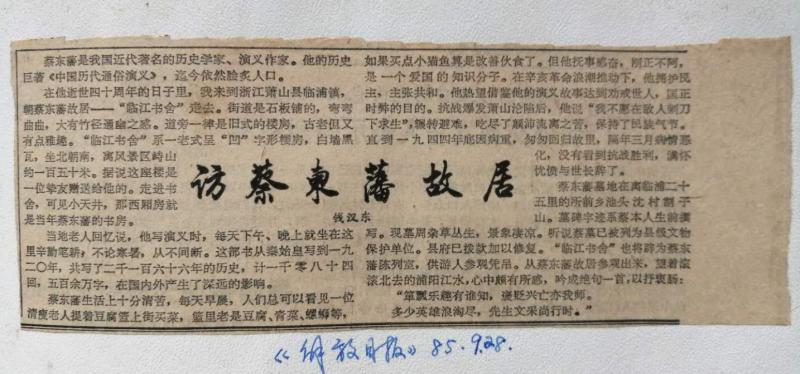 访蔡東藩故居
钱汉东
蔡东藩是我国近代著名的历史学家、演义作家。他的历史
巨著《中国历代通俗演义》，迄今依然脍炙人口。
在他逝世四十周年的日子里，我来到浙江萧山县临浦镇，
朝蔡东藩故居——“临江书舍”走去。街道是石板铺的，弯弯
曲曲，大有竹径通幽之感。道旁一律是旧式的楼房，古老但又
有点雅趣。“临江书舍”系一老式呈“凹”字形楼房，白墙黑
瓦，坐北朝南，离风景区峙山
约一百五十米。据说这座楼是
一位挚友赠送给他的。走进书
舍，可见小天井，那西厢房就
是当年蔡东藩的书房。
当地老人回忆说，他写演义时，每天下午、晚上就坐在这
里辛勤笔耕，不论寒暑，从不间断。这部书从秦始皇写到一九
二〇年，共写了二千一百六十六年的历史，计一千零八十四回，
五百余万字，在国内外产生了深远的影响。
蔡东藩生活上十分清苦，每天早晨，人们总可以看见一位
清瘦老人提着豆腐篮上街买菜，篮里老是豆腐、青菜、螺蛳等，
如果买点小猫鱼算是改善伙食了。但他抚事感奋，刚正不阿，
是一个爱国的知识分子。在辛亥革命浪潮推动下，他拥护民
主，主张共和。他热望借鉴他的演义故事达到劝戒世人，匡正
时弊的目的。抗战爆发萧山沦陷后，他说“我不愿在敌人刺刀
下求生”，辗转避难，吃尽了颠沛流离之苦，保持了民族气节。
直到一九四四年底因病重，匆匆回归故里，隔年三月病情恶
化，没有看到抗战胜利，满怀
忧愤与世长辞了。
蔡东藩墓地在离临浦二十
五里的所前乡池头沈村割子
山。墓碑字迹系蔡本人生前撰
写。现墓周杂草丛生，景象凄凉。听说蔡墓已被列为县级文物
保护单位。县府已拨款加以修复。“临江书舍”也将辟为蔡东
藩陈列室，供游人参观凭吊。从蔡东藩故居参观出来，望着滚
滚北去的浦阳江水，心中颇有所感，吟成绝句一首，以抒衷肠：
“箪瓢乐趣有谁知，褒贬兴亡亦我师。
多少英雄浪淘尽，先生文采尚行时。”
《解放日报》85.9.28.